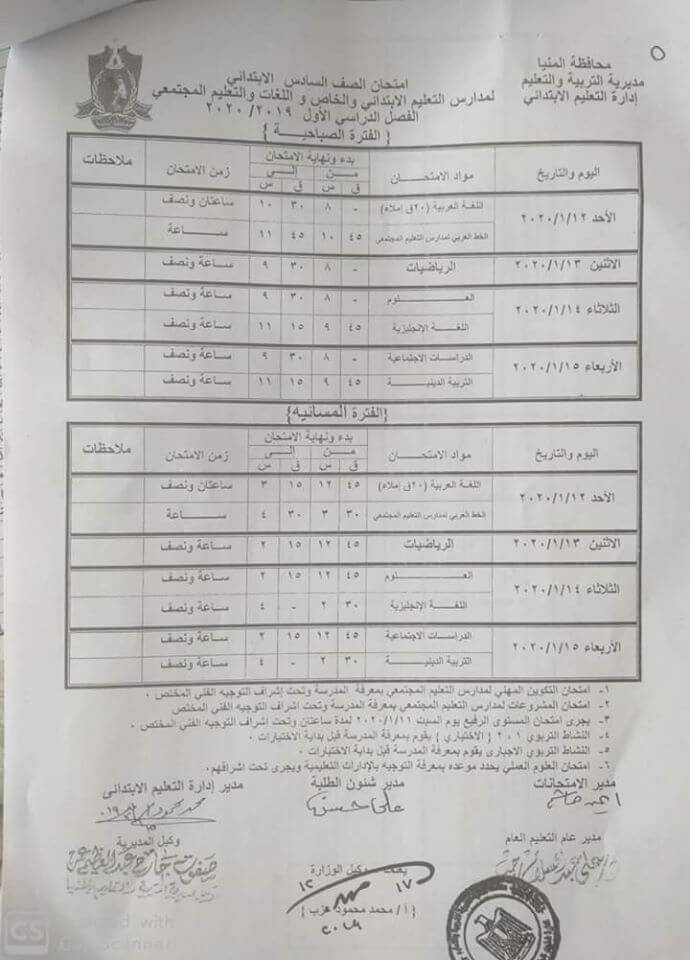 محافظة المنيا
مديرية التربية والتعليم
إدارة التعليم الابتدائي
امتحان الصف السادس الابتدائي
لمدارس التعليم الابتدائي والخاص و اللغات والتعليم المجتمعي
الفصل الدراسي الأول ٢٠١٩/ ٢٠٢٠
{ الفترة الصباحية }
اليوم والتاريخ مواد الامتحان بدء ونهاية الامتحان زمن الامتحان ملاحظات
من إلى
ق س ق س
الأحد ٢٠٢٠/١/١٢ اللغة العربية (٢٠ق إملاء) - ٨ ٣٠ ١٠ ساعتان ونصف
الخط العربي لمدارس التعليم المجتمعي ٤٥ ١٠ ٤٥ ١١ ساعة
الاثنين ٢٠٢٠/١/١٣ الرياضيات - ٨ ٣٠ ٩ ساعة ونصف
الثلاثاء ٢٠٢٠/١/١٤ العلوم - ٨ ٣٠ ٩ ساعة ونصف
اللغة الإنجليزية ٤٥ ٩ ١٥ ١١ ساعة ونصف
الأربعاء ٢٠٢٠/١/١٥ الدراسات الاجتماعية - ٨ ٣٠ ٩ ساعة ونصف
التربية الدينية ٤٥ ٩ ١٥ ١١ ساعة ونصف
{الفترة المسائية}
اليوم والتاريخ مواد الامتحان بدء ونهاية الامتحان زمن الامتحان ملاحظات
من إلى
ق س ق س
الأحد ٢٠٢٠/١/١٢ اللغة العربية (٢٠ق إملاء) ٤٥ ١٢ ١٥ ٣ ساعتان ونصف
الخط العربي لمدارس التعليم المجتمعي ٣٠ ٣ ٣٠ ٤ ساعة
الاثنين ٢٠٢٠/١/١٣ الرياضيات ٤٥ ١٢ ١٥ ٢ ساعة ونصف
الثلاثاء ٢٠٢٠/١/١٤ العلوم ٤٥ ١٢ ١٥ ٢ ساعة ونصف
اللغة الإنجليزية ٣٠ ٢ - ٤ ساعة ونصف
الأربعاء ٢٠٢٠/١/١٥ الدراسات الاجتماعية ٤٥ ١٢ ١٥ ٢ ساعة ونصف
التربية الدينية ٣٠ ٢ - ٤ ساعة ونصف
١- امتحان التكوين المهني لمدارس التعليم المجتمعي بمعرفة المدرسة وتحت إشراف التوجيه الفني المختص .
٢- امتحان المشروعات لمدارس التعليم المجتمعي بمعرفة المدرسة وتحت إشراف التوجيه الفني المختص
٣- يجرى امتحان المستوى الرفيع يوم السبت ٢٠٢٠/١/١١ لمدة ساعتان وتحت إشراف التوجيه الفني المختص .
٤- النشاط التربوي ٢،١ { الاختياري } يقوم بمعرفة المدرسة قبل بداية الاختبارات .
٥- النشاط التربوي الاجباري يقوم بمعرفة المدرسة قبل بداية الاختبارات .
٦- امتحان العلوم العملي يحدد موعده بمعرفة التوجيه بالإدارات التعليمية ويجرى تحت اشرافهم .
مدير الامتحانات مدير شئون الطلبة مدير إدارة التعليم الابتدائى
على حسن
مدير عام التعليم العام وكيل المديرية
وكيل الوزارة
١٧
١٢
{أ / محمد محمود عزب }
٢٠١٩
CS